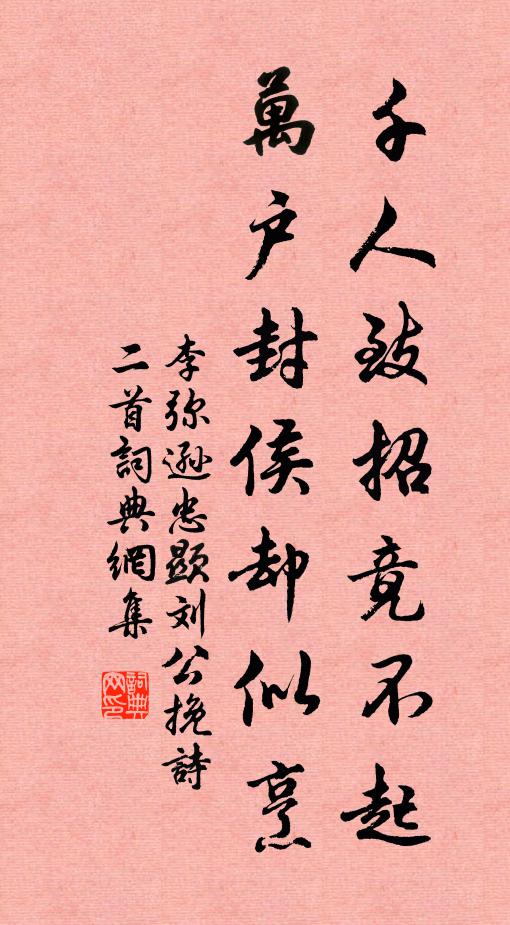 千人致招竟不起
萬户封侯却似烹
李弥遜忠顯刘公挽詩
二首詞典網集
詞典網印